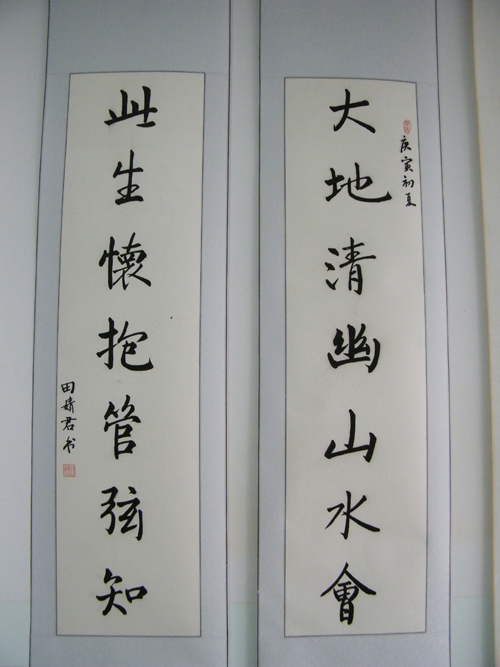 庚寅初夏
大地清幽山水會
此生懷抱管弦知
田婧君书